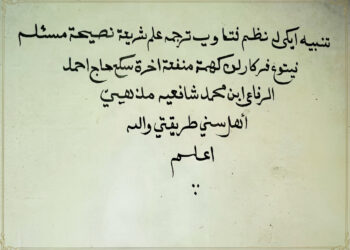 تنبيه ايكي نظم ترجمه علم شريعة نصيحة
فركارلن كهمة منفعة اخرة سكع حاج احمد
الرفاعي ابن محمد شافعيه مذهبي
أهل سني طريقتي والله
اعلم